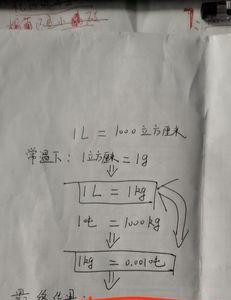 1L = 1000立方厘米
常温下：1立方厘米 = 1g
⇓
1L = 1kg
1吨 = 1000kg
⇓
1kg = 0.001吨
⇓